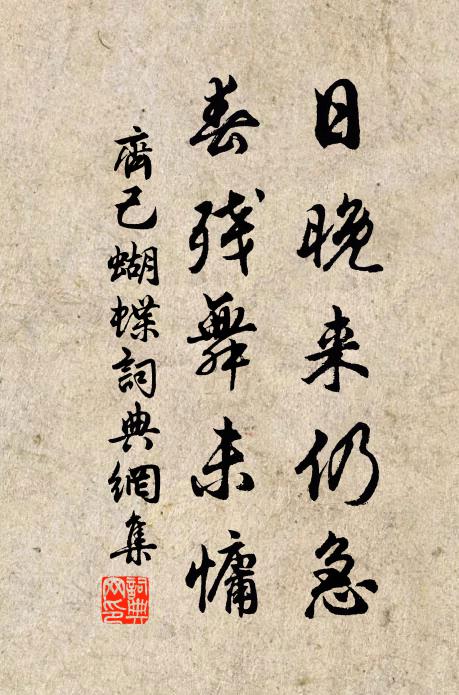 日晚来仍急
春残舞未慵
齊己蝴蝶詞典網集
詞典網印